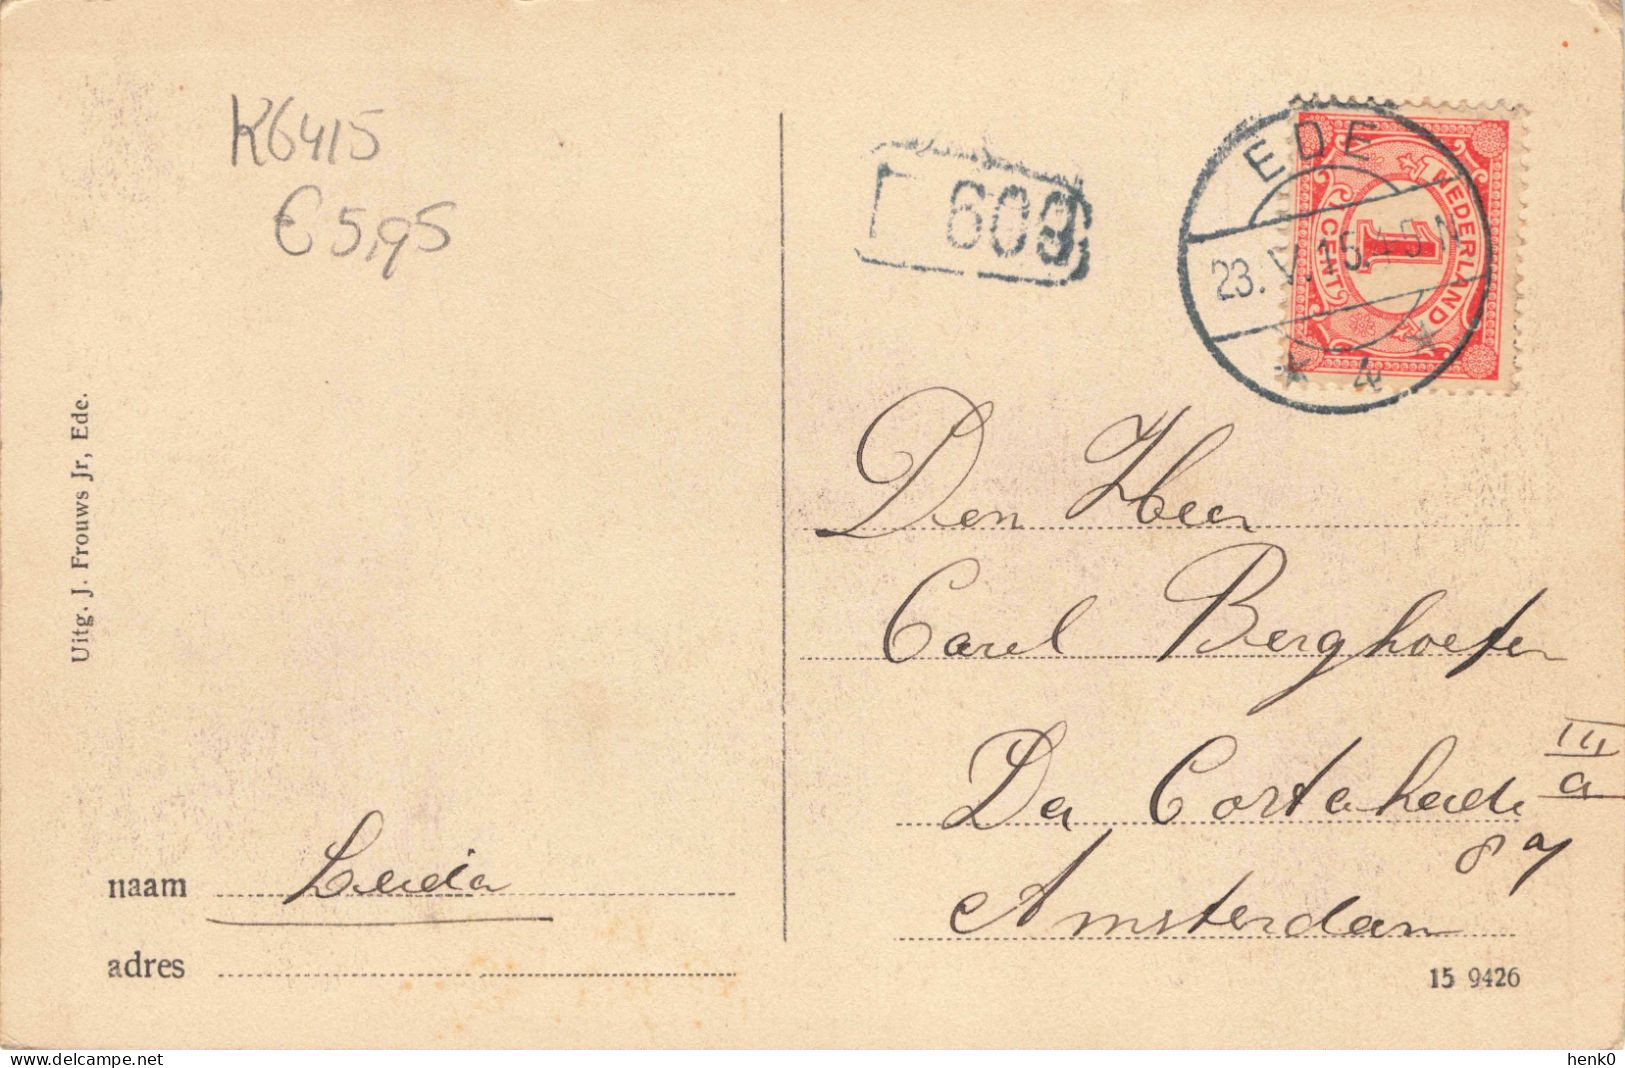 K6415
€ 5,95
608
EDE
23. V. 15. 4-5 N
4
NEDERLAND
1
CENT
Uitg. J. Frouws Jr, Ede.
Den Heer
Carel Berghoefer
Da Costakade III
a
87
Amsterdam
naam Leida
adres
15 9426
henk0
delcampe.net